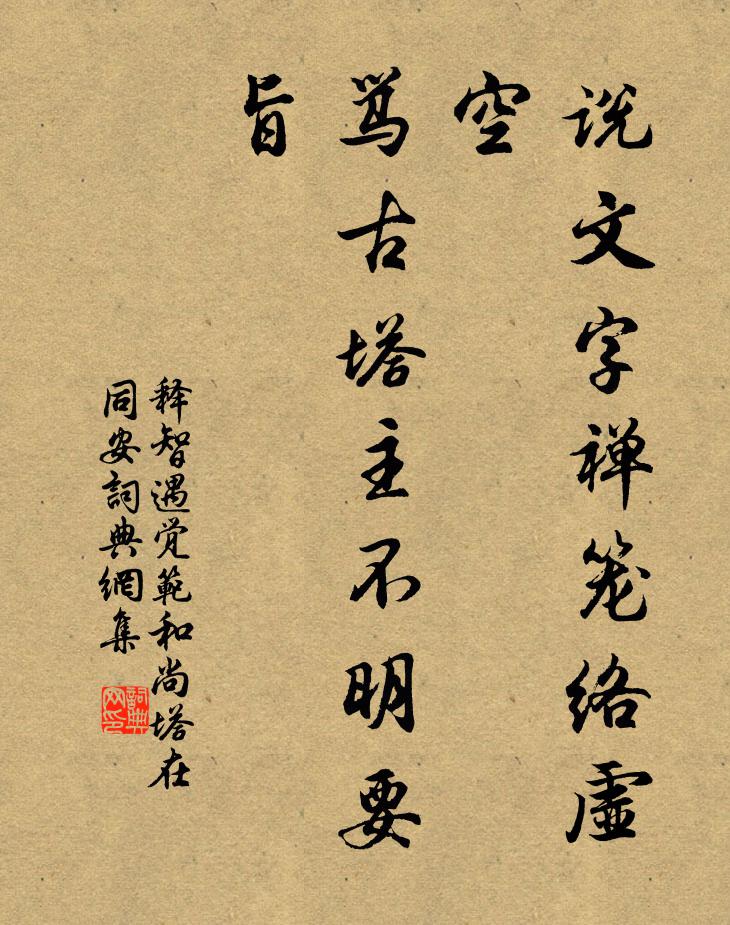 说文字禅笼络虚
空
骂古塔主不明要
旨
释智遇觉範和尚塔在
同安詞典網集
詞典
网印